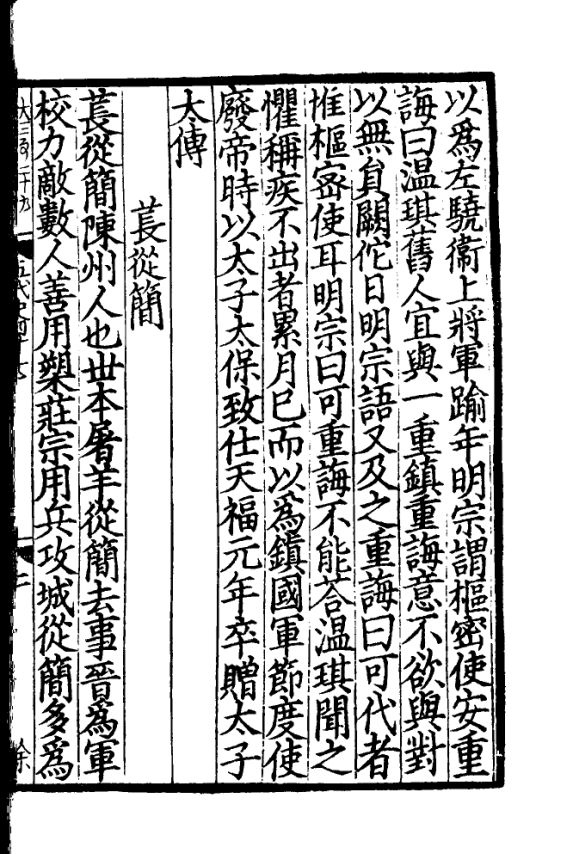 以爲左驍衞上將軍踰年明宗謂樞密使安重
誨曰温琪舊人宜與一重鎮重誨意不欲與對
以無員闕佗日明宗語又及之重誨曰可代者
惟樞宻使耳明宗曰可重誨不能荅温琪聞之
懼稱疾不出者累月巳而以爲鎮國軍節度使
廢帝時以太子太保致仕天福元年卒贈太子
太傅
萇從簡
萇從簡陳州人也丗本屠羊從簡去事晉爲軍
校力敵數人善用槊莊宗用兵攻城從簡多爲